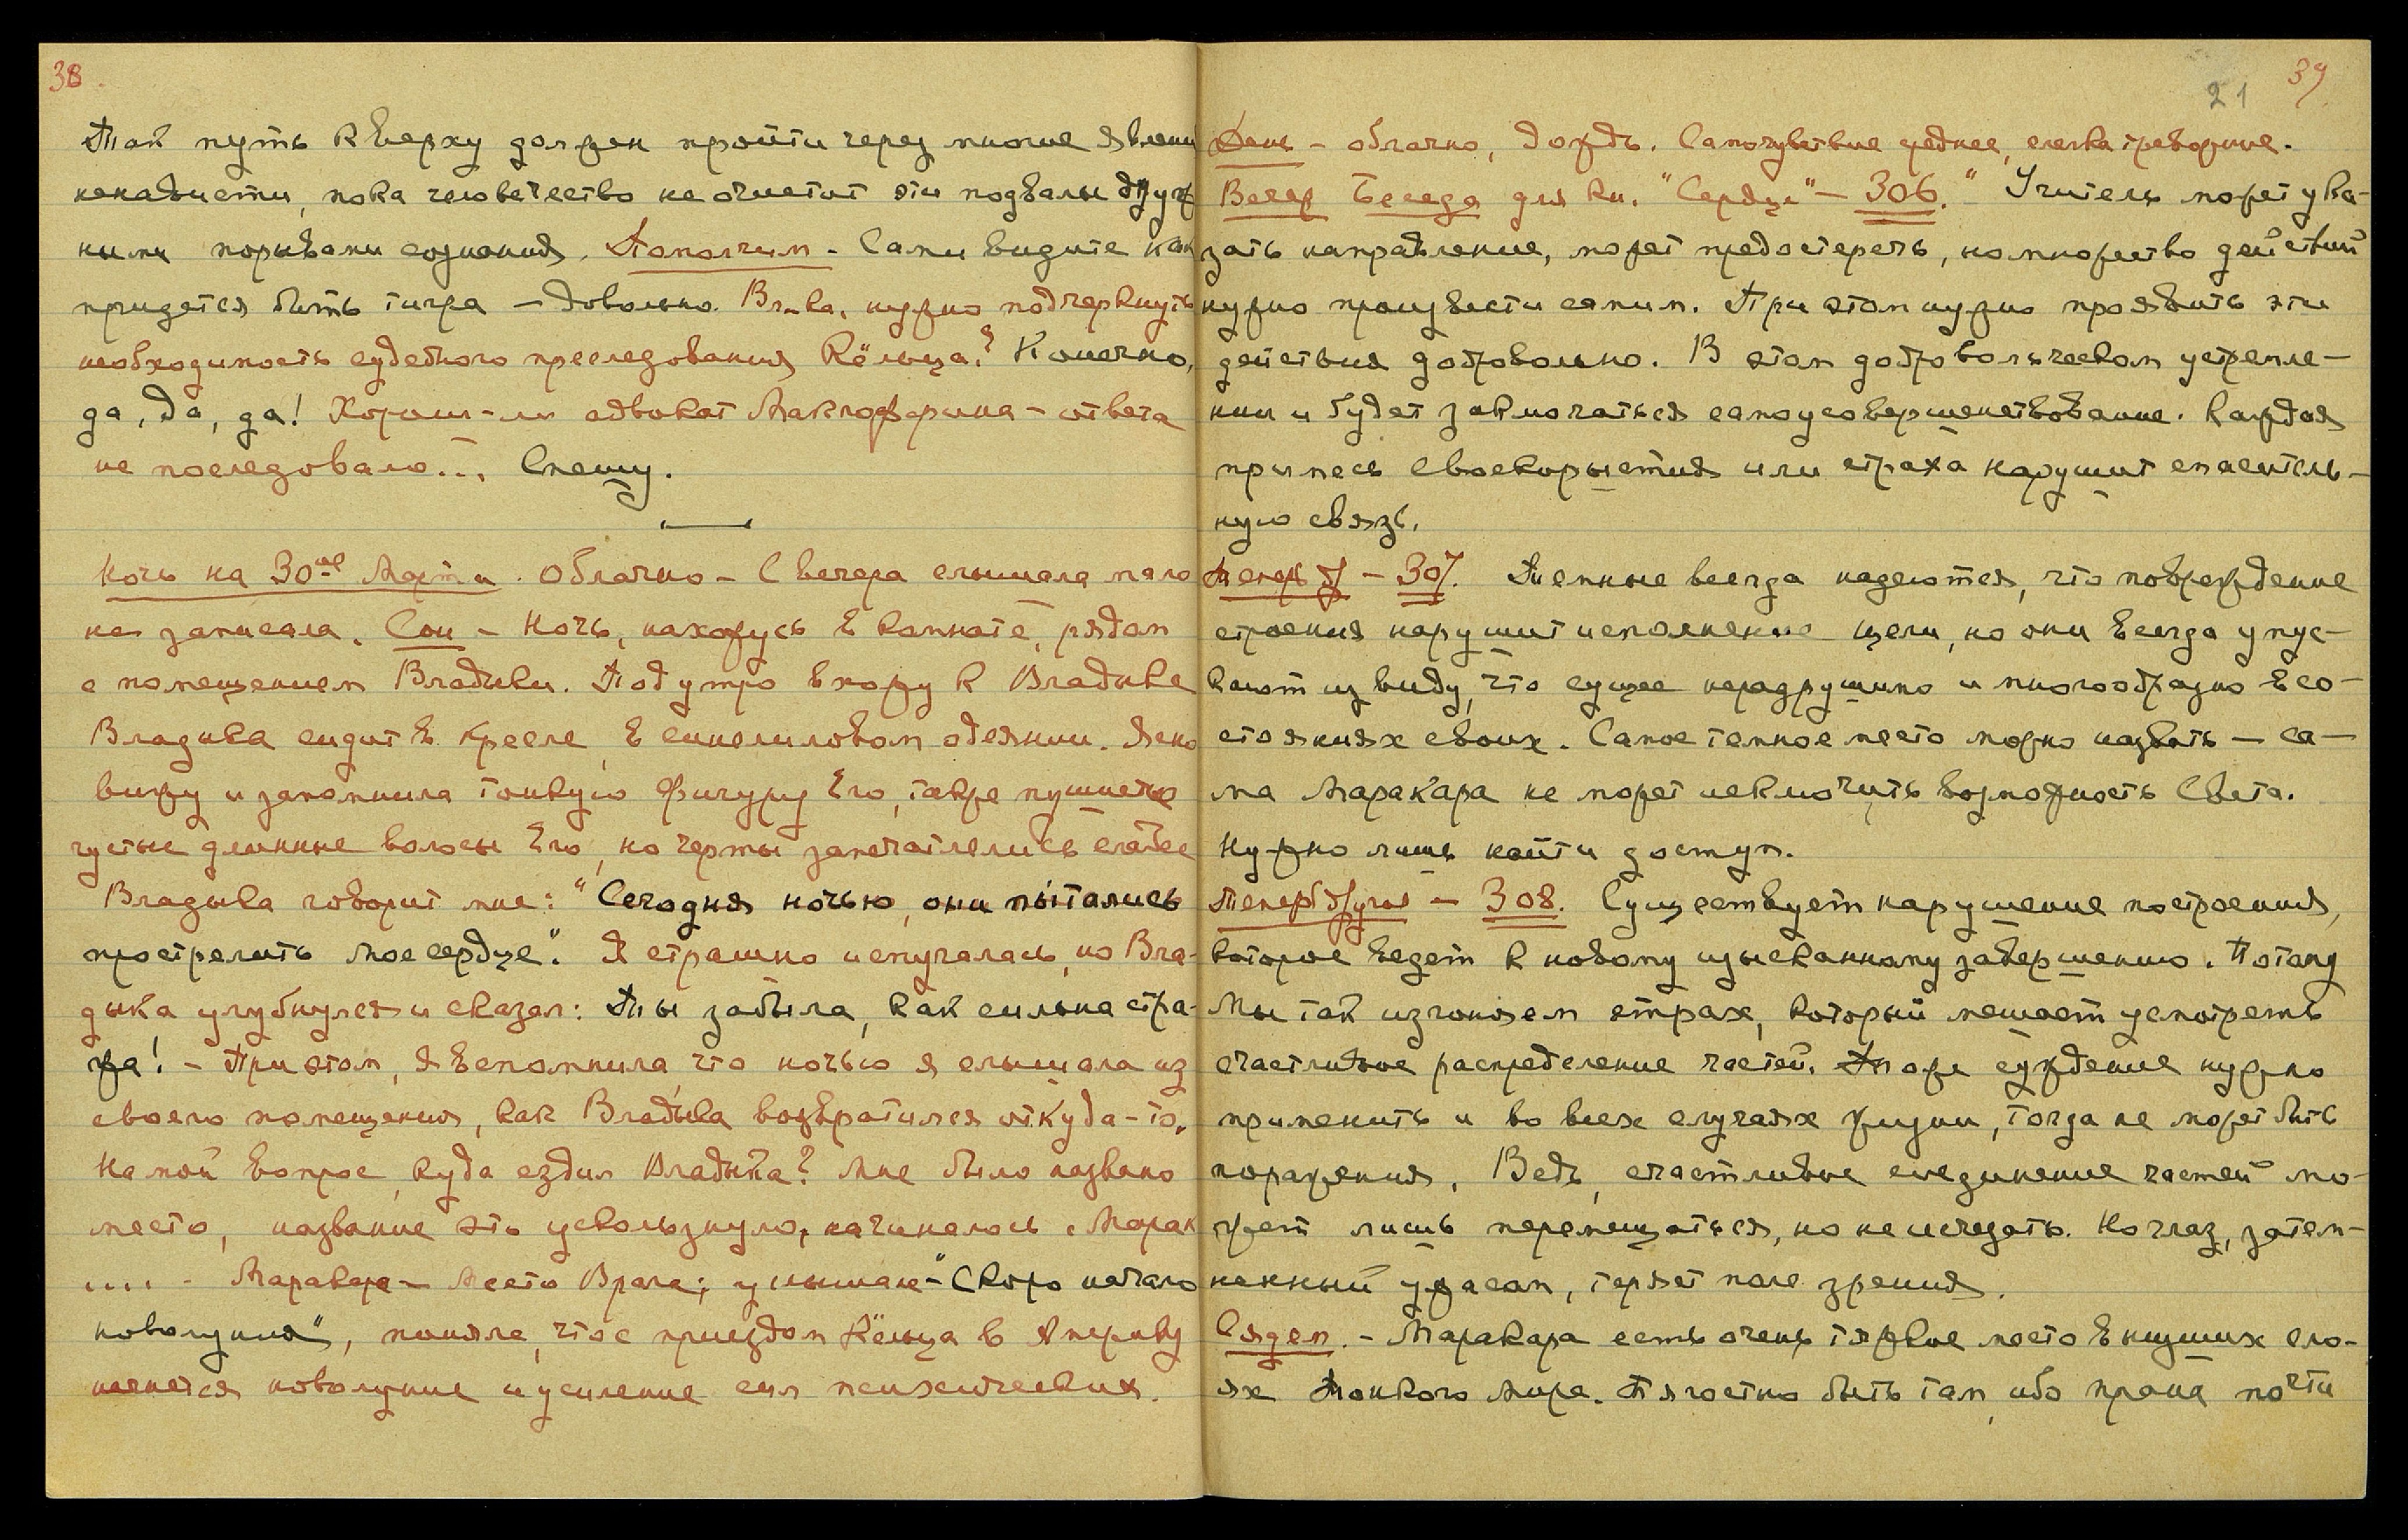 38.
Так путь кверху должен пройти через многие явлени
ненависти, пока человечество не очистит эти подвалы друж
ными порывами сознания. Помолчим - Сами видите как
придется бить тигра — довольно. Вл-ка, нужно подчеркнуть
необходимость судебного преследования Кёльца? Конечно,
да, да, да! Хорош-ли адвокат - ответа
не последовало... Спешу.
Ночь на 30ое Марта. Облачно - С вечера слышала мало
не записала. Сон - Ночь, нахожусь в комнате, рядом
с помещением Владыки. Под утро вхожу к Владыке
Владыка сидит в кресле, в синелиловом одеянии. Ясно
вижу и запомнила тонкую фигуру Его, также пушистые
густые длинные волосы Его, но черты запечатлелись слабее
Владыка говорит мне: "Сегодня ночью, они пытались
прострелить мое сердце". Я страшно испугалась, но Вла-
дыка улыбнулся и сказал: Ты забыла, как сильна стра-
жа! - При этом, я вспомнила, что ночью я слышала из
своего помещения, как Владыка возвратился откуда-то.
На мой вопрос, куда ездил Владыка? Мне было названо
место, название это ускользнуло, начиналось с Марак
.... - Маракара - Место Врага; услышала - "Скоро начало
новолуния", поняла, что с приездом Кёльца в Америку
начнется новолуние и усиление сил психических.
21 39
День - облачно, дождь. Самочувствие среднее, слегка тревожное.
Вечер Беседа для кн. "Сердце" - 306. "Учитель может ука-
зать направление, может предостеречь, но множество действий
нужно произвести самим. При этом нужно проявить эти
действия добровольно. В этом добровольческом устремле-
нии и будет заключаться самоусовершенствование. Каждая
примесь своекорыстия или страха нарушит спаситель-
ную связь.
Теперь др - 307. Темные всегда надеются, что повреждение
строения нарушит исполнение цели, но они всегда упус-
кают из виду, что сущее неразрушимо и многообразно в со-
стояниях своих. Самое темное место можно назвать — са-
ма Марака́ра не может исключить возможность Света.
Нужно лишь найти доступ.
Теперь другое - 308. Существует нарушение построения,
которое ведет к новому изысканному завершению. Потому
Мы так изгоняем страх, который мешает усмотреть
счастливое распределение частей. То же суждение нужно
применить и во всех случаях жизни, тогда не может быть
поражения. Ведь, счастливое соединение частей мо-
жет лишь перемещаться, но не исчезать. Но глаз, затем-
ненный ужасом, теряет поле зрения.
Сядем. - Маракара есть очень тяжкое место в низших сло-
ях Тонкого Мира. Тягостно быть там, ибо прана почти